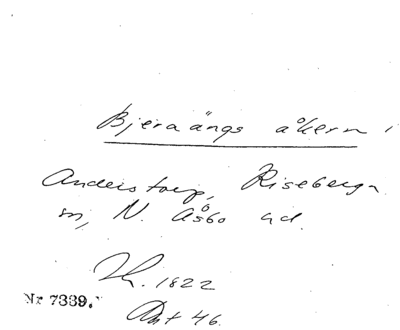 Bjeraängs åkern
Anderstorp, Riseberga
sn, N. Åsbo hd.
Lh. 1822
Nr 7339.
Ant 46.